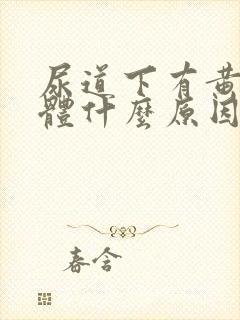 尿道下有黃
體什麼原因
春含